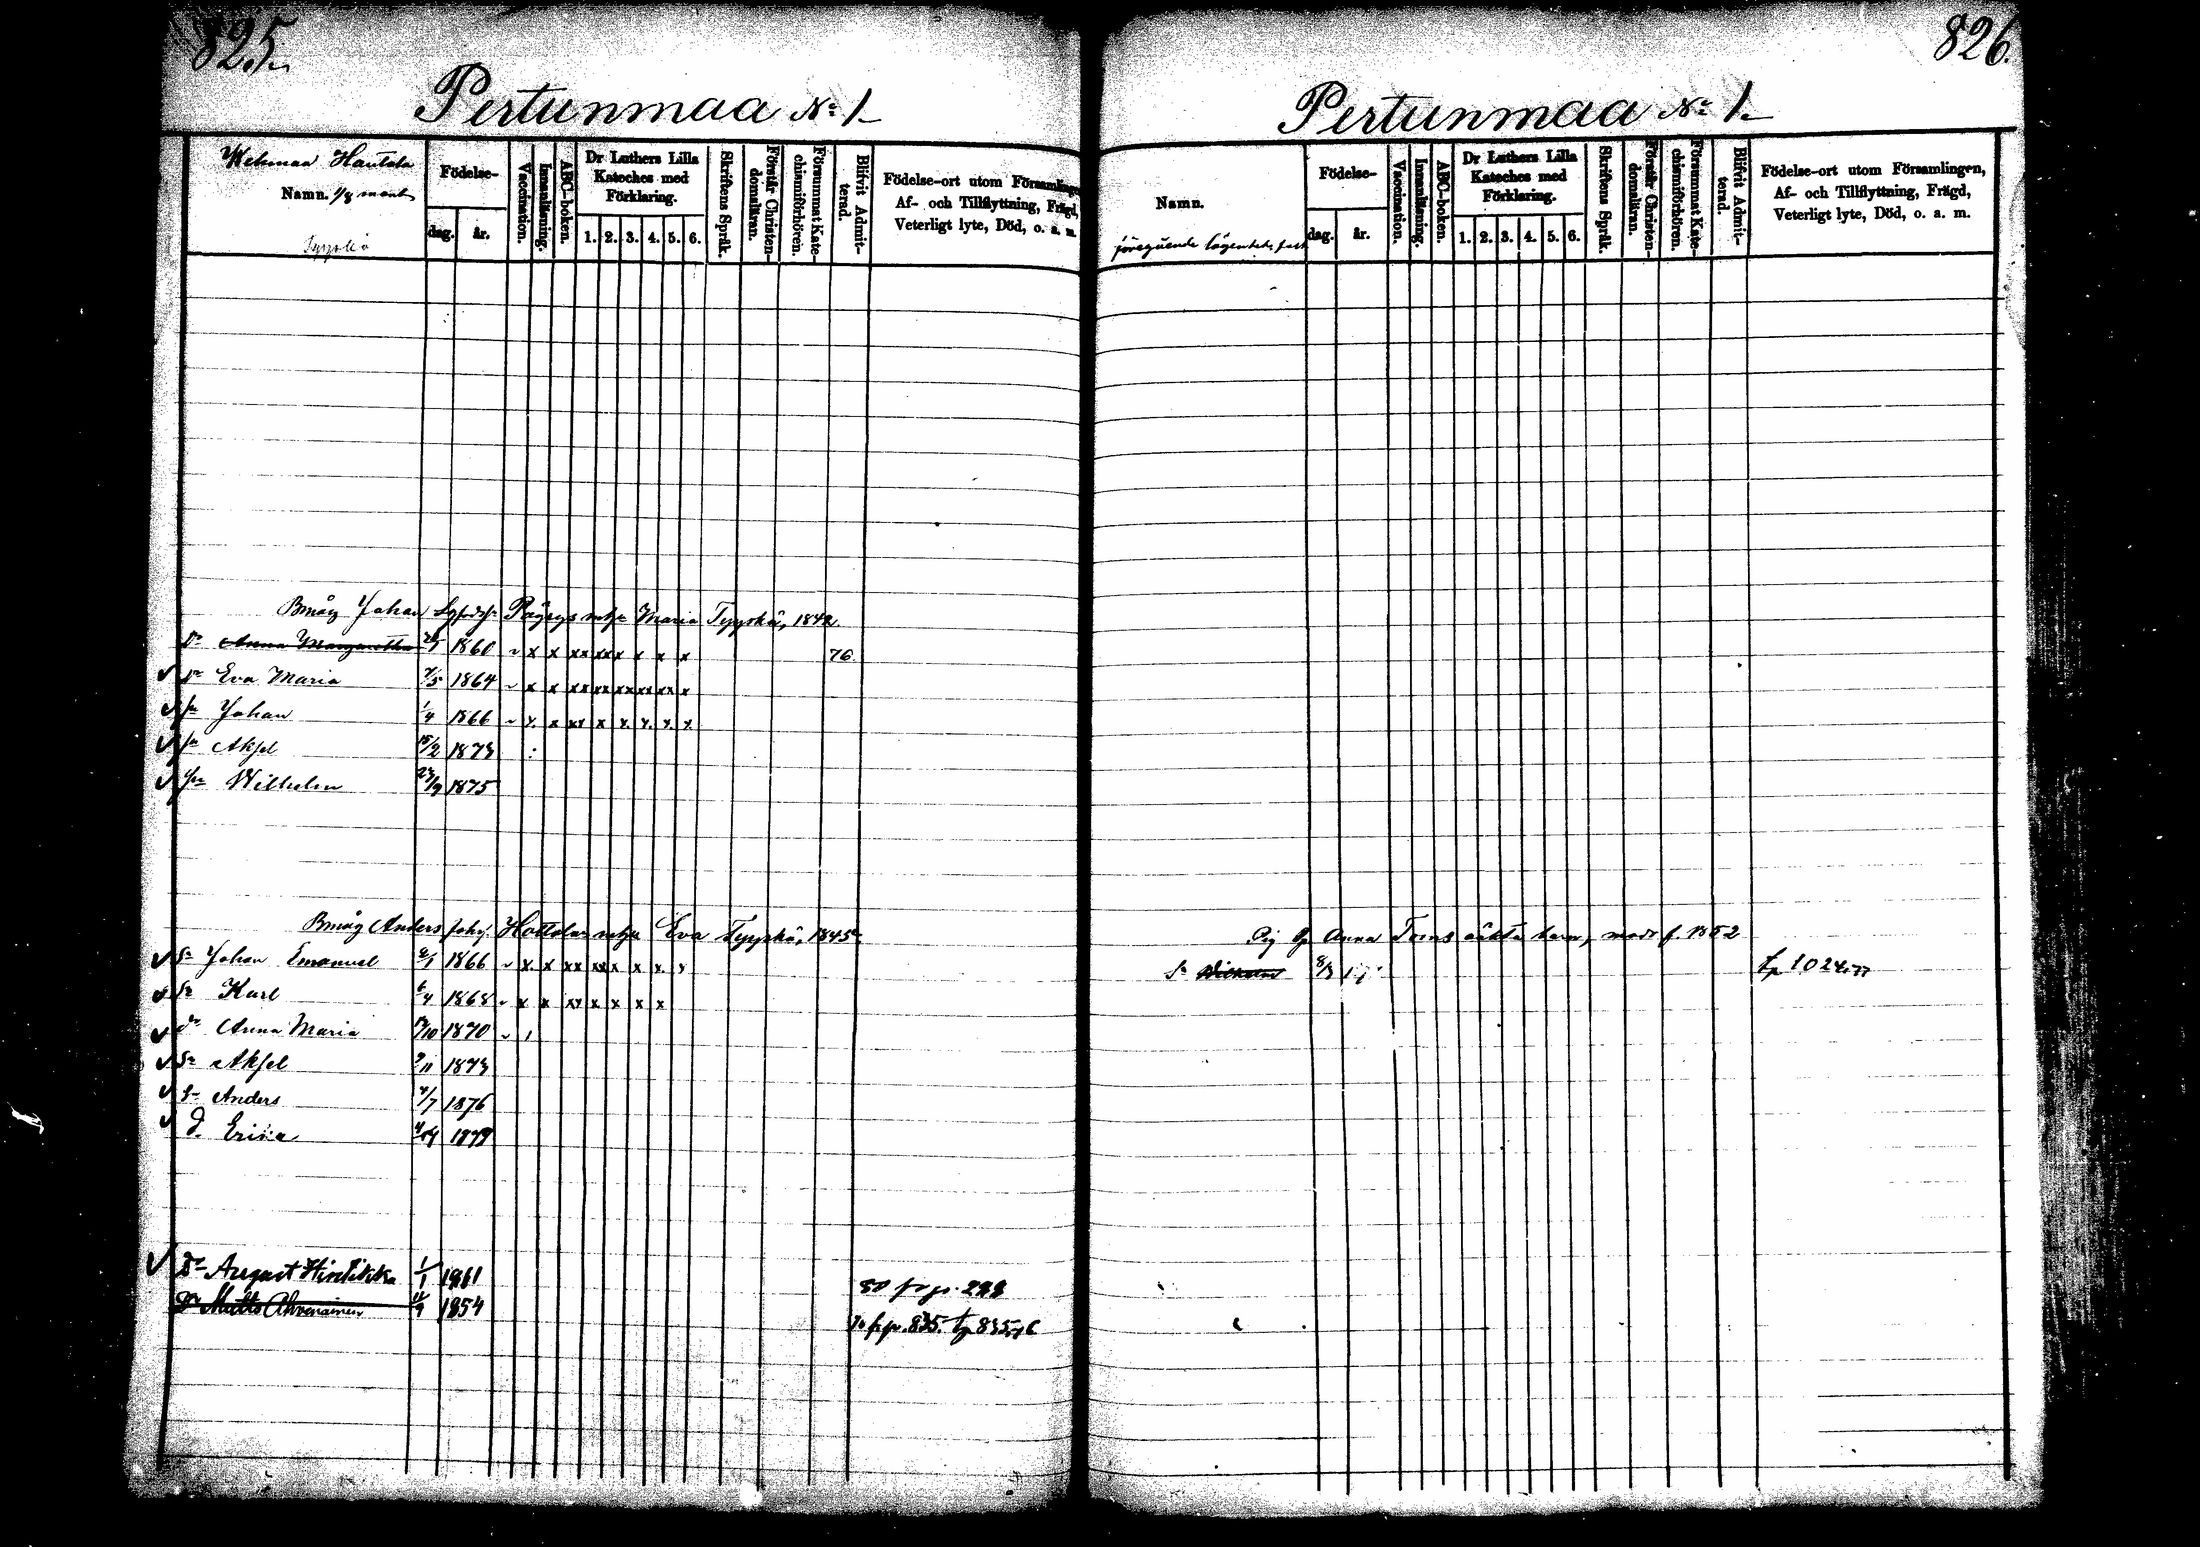 825.
Pertunmaa No 1
Wehmaa Hautala
Namn. 1/8 mant
Födelse-
dag. år.
Vaccination.
Innanläsning.
ABC-boken.
Dr Luthers Lilla
Kateches med
Förklaring.
1. 2. 3. 4. 5. 6.
Skriftens Språk.
Förstår Christen-
domsläran.
Försummat Kate-
chismiförhören.
Blifvit Admit-
terad.
Födelse-ort utom Församlingen,
Af- och Tillflyttning, Frägd,
Veterligt lyte, Död, o. a. m.
Bmåg Johan Maria Tyyskä, 1842.
Dr Anna Margaretha 1860 x x xx xxx x x x 76.
✓ Dr Eva Maria 7/5 1864 x x xx xx xx xx xx x
✓ Sn Johan 1/4 1866 x x xx x x x x x
✓ Sn Aksel 15/2 1873
✓ Sn Wilhelm 27/9 1875
Bmåg Anders Johs. Eva Tyyskä, 1845.
✓ Sn Johan Emanuel 6/1 1866 x x xx xxx x x x
✓ Sn Karl 6/4 1868 x x xx x x x x
✓ dr Anna Maria 1870
✓ Sn Aksel 9/11 1873
✓ Sn Anders 4/7 1876
✓ d. Erika 1879
✓ Dr August Hintikka 1/1 1861 80 fr p. 298
Dr Matts Ahvenainen 1854 fr p. 835. tp 835,76
826.
Pertunmaa No 1.
Namn.
föregående lägenhet
Födelse-
dag. år.
Vaccination.
Innanläsning.
ABC-boken.
Dr Luthers Lilla
Kateches med
Förklaring.
1. 2. 3. 4. 5. 6.
Skriftens Språk.
Förstår Christen-
domsläran.
Försummat Kate-
chismiförhören.
Blifvit Admit-
terad.
Födelse-ort utom Församlingen,
Af- och Tillflyttning, Frägd,
Veterligt lyte, Död, o. a. m.
Pig Anna Toins oäkta barn, modr f. 1852
Sn tp 1024,77